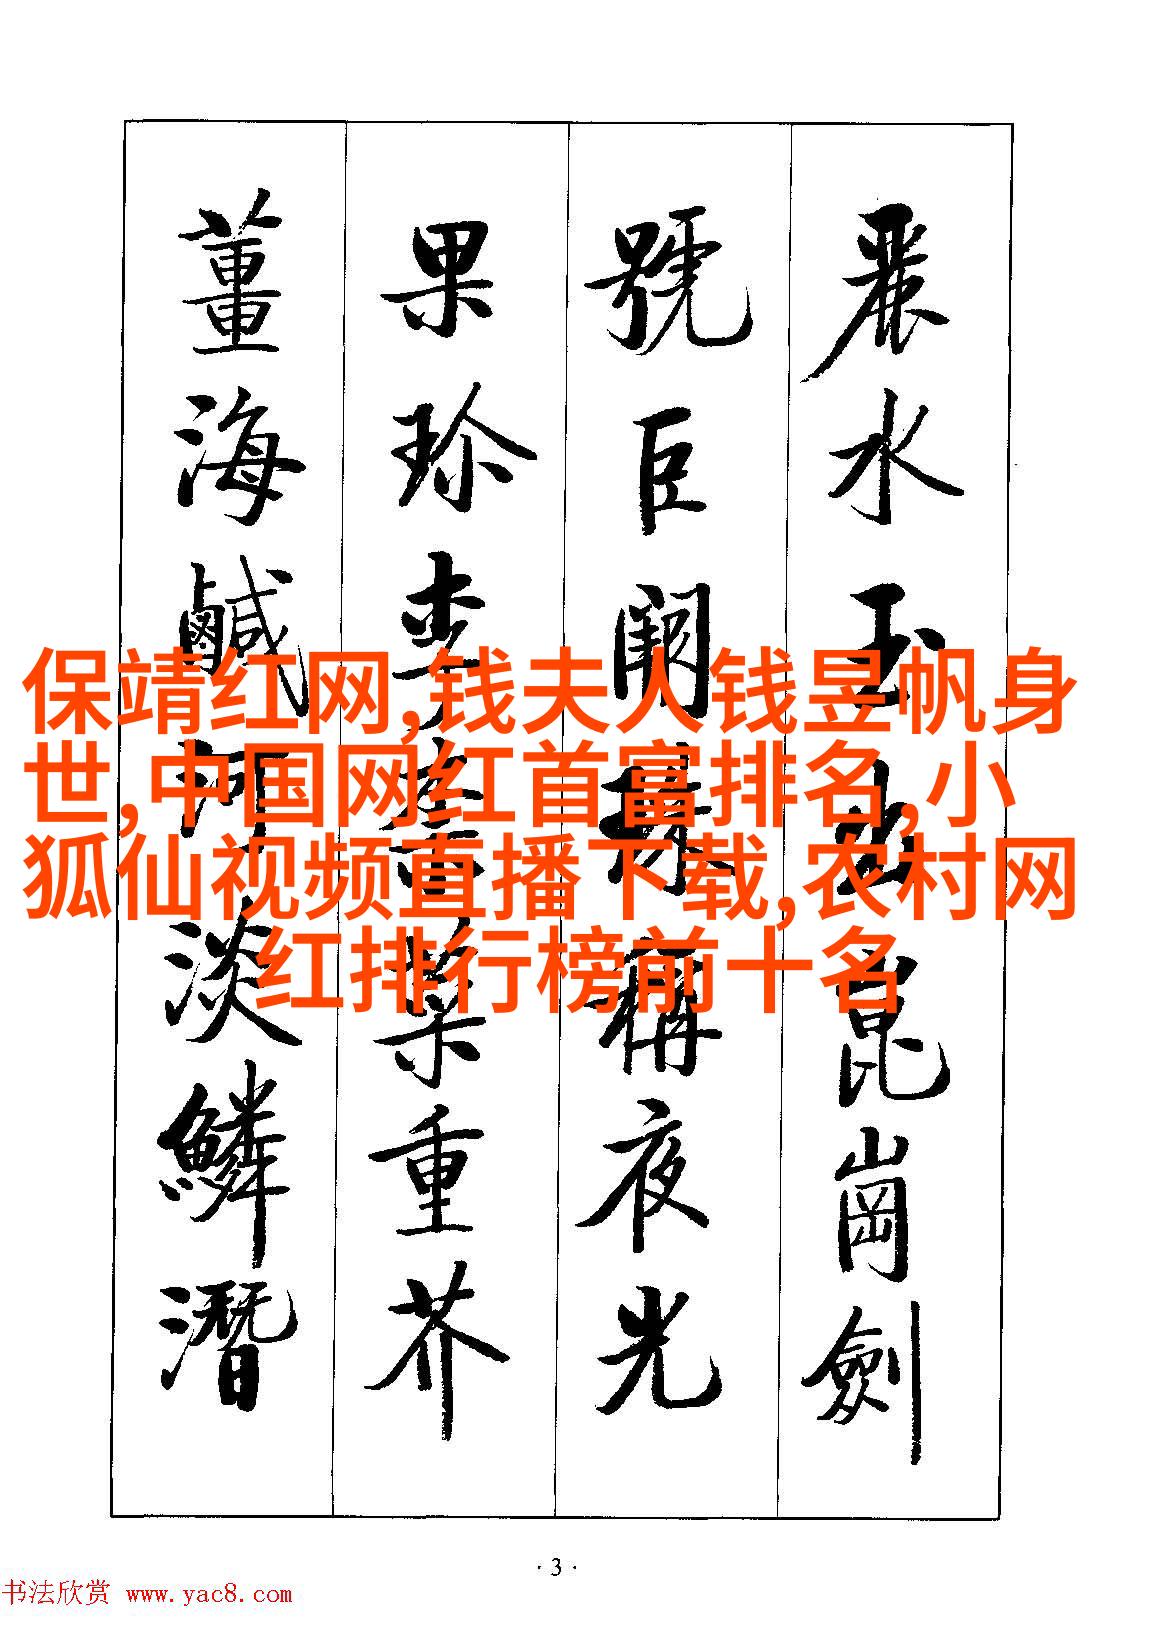 麗水玉出崑崗劍
號巨闕珠稱夜光
果珍李柰菜重芥
薑海鹹河淡鱗潛
保靖红网,钱夫人钱昱帆身
世,中国网红首富排名,小
狐仙视频直播下载,农村网
红排行榜前十名
·3·
书法欣赏 www.yac8.com